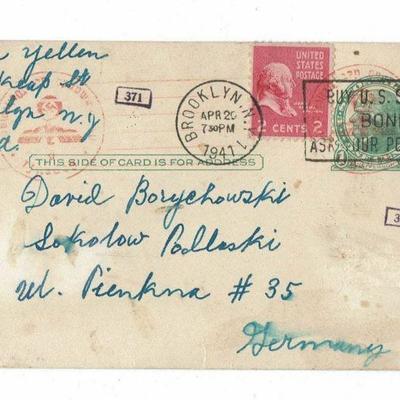 Yellen
371
Keap St
N.Y
UNITED STATES POSTAGE
2 CENTS 2
BROOKLYN, N.Y.
APR 20
730PM
1941
BUY U.S. S
BOND
ASK OUR PO
THIS SIDE OF CARD IS FOR ADDRESS
David Borychowski
Sokolow Podlaski
ul. Pienkna # 35
Germany